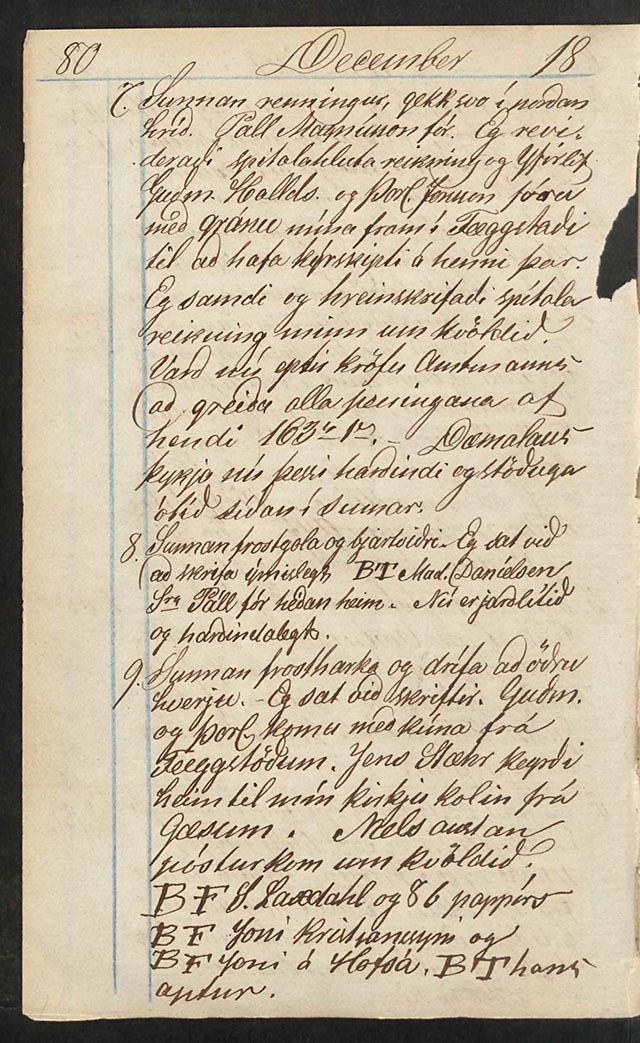 80 December 18
7. Sunnan renningur, gekk svo í nordan
hríd. Páll Magnússon fór. Eg reví-
deradi spítalahluta reikning og Yfirlit
Gudm. Hallds. og Þorl. Jónsson fóru
med gránu mína fram í Fæggstadi
til ad hafa kýrskipti á henni þar.
Eg samdi og hreinskrifadi spítala
reikning minn um kvöldid.
Vard nú eptir kröfu Amtmanns
ad greida alla peningana af
hendi 163 1. – Dæmalaus
þykja nú þessi hardindi og stöduga
ótíd sídan í sumar.
8. Sunnan frostgola og bjartvidri. Eg sat vid
ad skrifa ýmislegt. BT Mad. Daníelsen
Sra Páll fór hédan heim. Nú er jardlítid
og hardindalegt.
9. Sunnan frostharka og drífa ad ödru
hverju. – Eg sat vid skriftir. Gudm.
og Þorl. komu med kúna frá
Fæggstödum. Jens Stæhr keyrdi
heim til mín kirkju kolin frá
Gæsum. Niels austan
póstur kom um kvöldid.
BF S. Laxdahl og 86 pappírs
BF Jóni Kristjánssyni og
BF Jóni á Hofsá. BT hans
aptur.